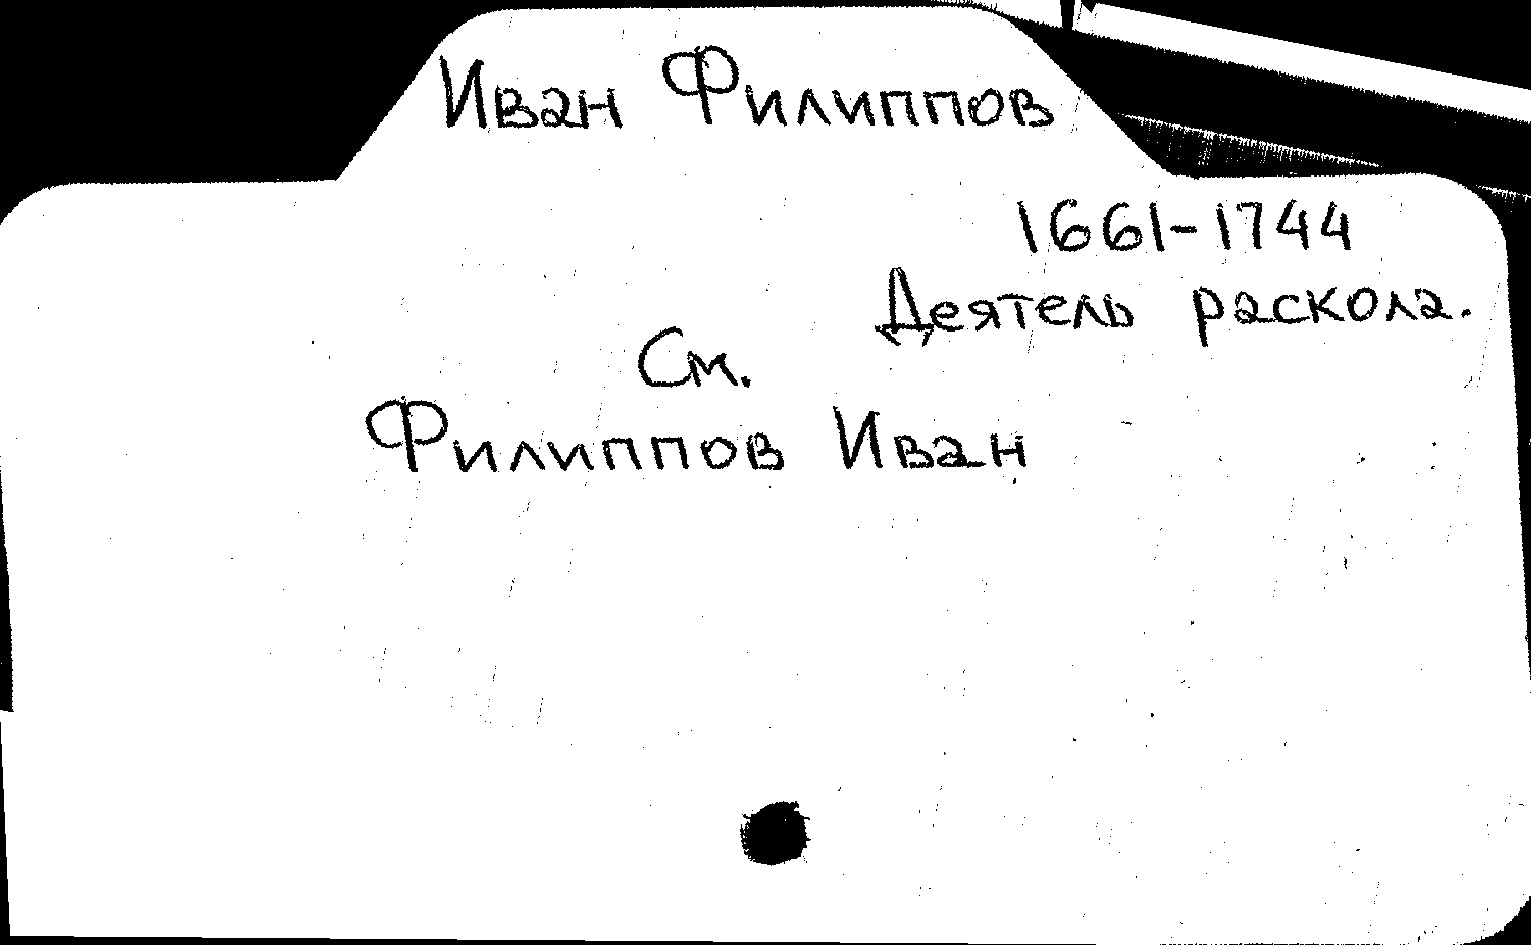 Иван Филиппов
1661-1744
Деятель раскола.
См.
Филиппов Иван